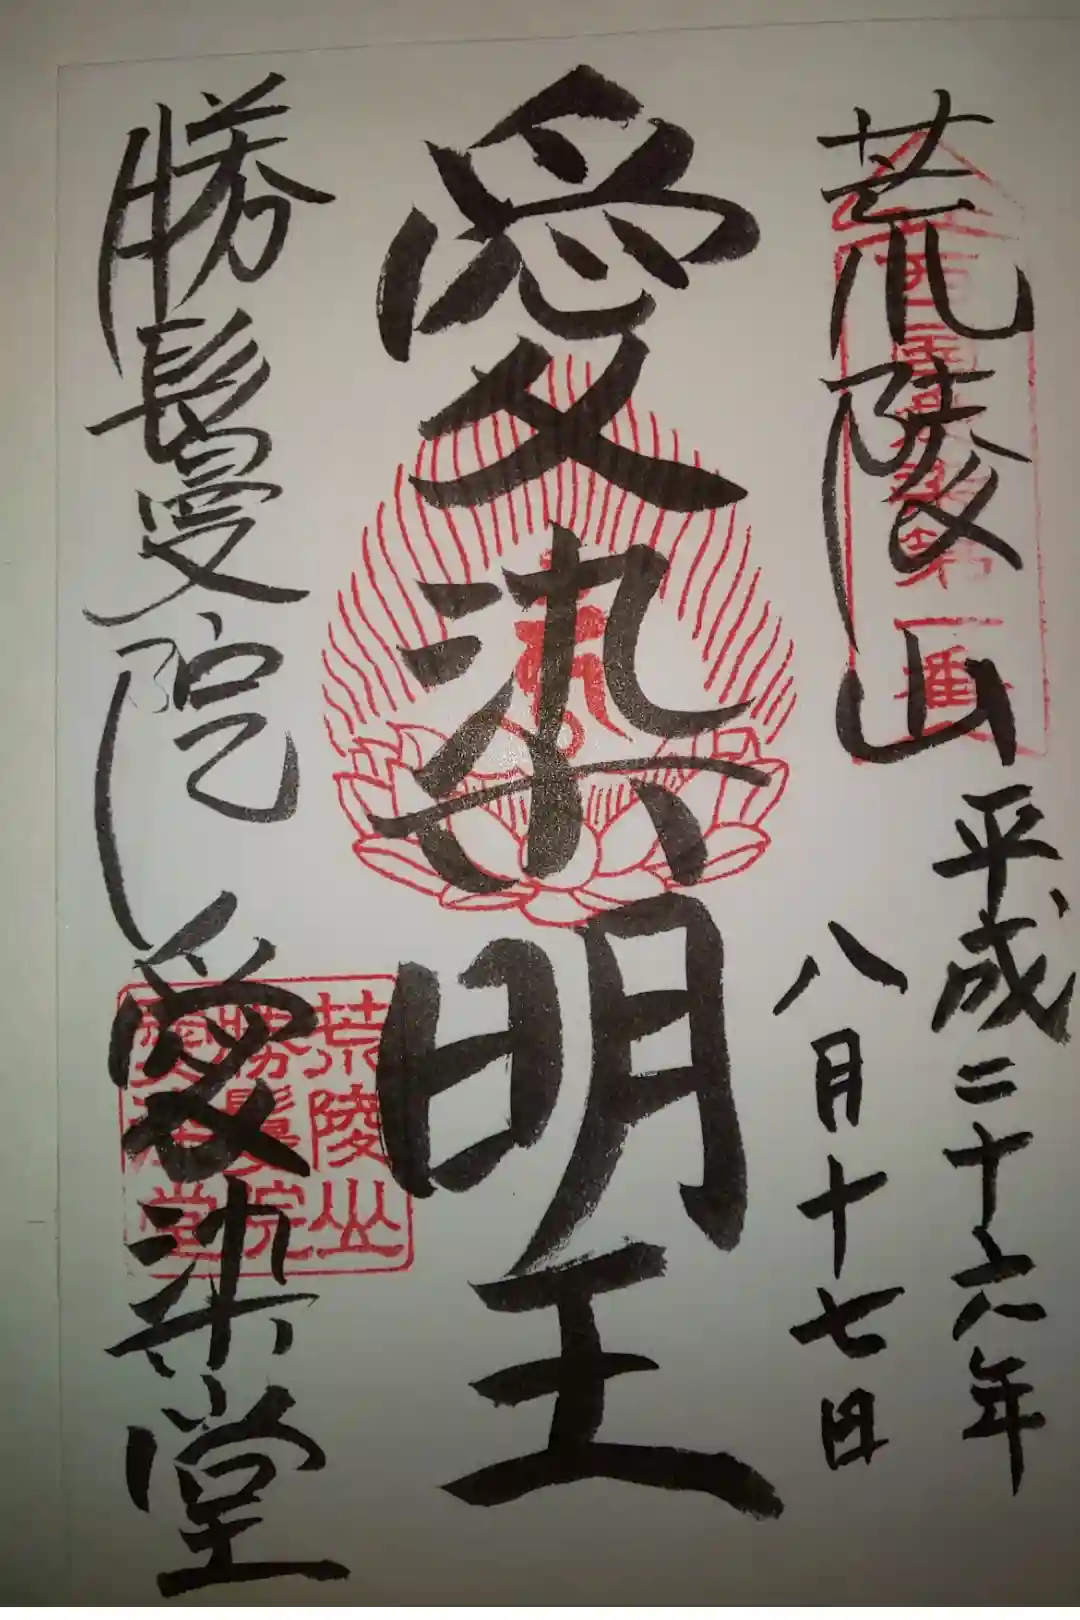 荒陵山
平成二十六年
八月十七日
愛染明王
勝鬘院
愛染堂
荒陵山
勝鬘院
愛染堂